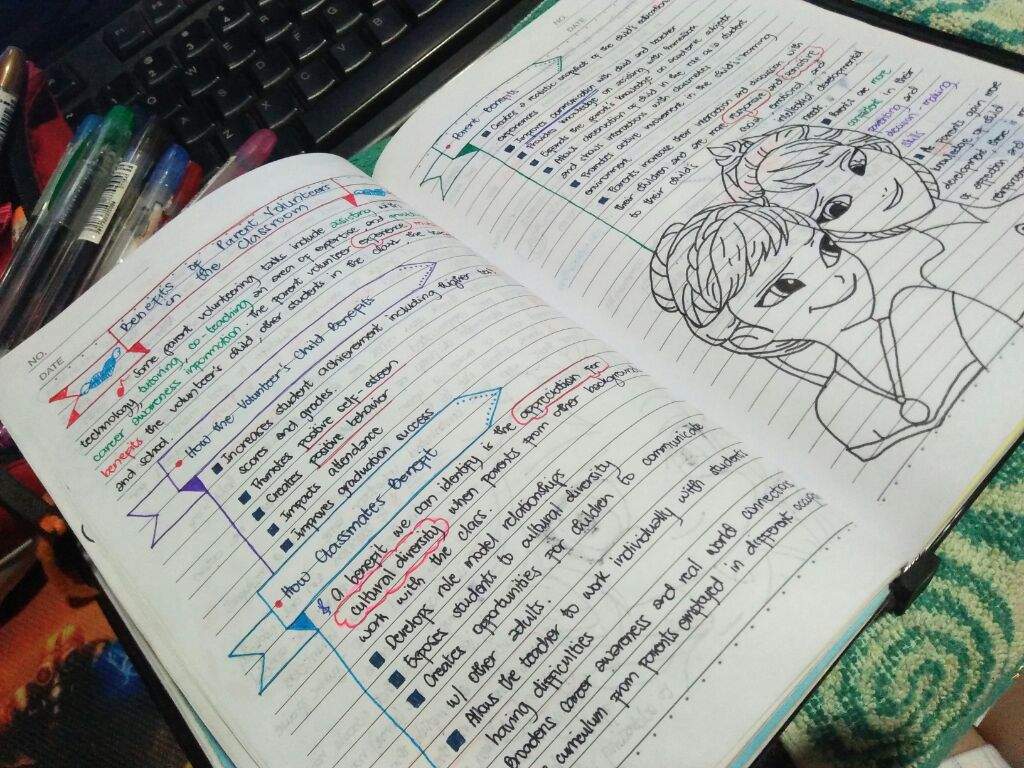 NO.
DATE
Benefits of Parent Volunteers
in the Classroom
Some parent volunteering tasks include assisting with
technology, tutoring, co-teaching an area of expertise and
career awareness information. The parent volunteer experience
benefits the volunteer's child, other students in the class, the
and school.
How the Volunteer's Child Benefits
Increases student achievement including higher test
scores and grades
Promotes positive self-esteem
Creates positive behavior
Impacts attendance
Improves graduation success
How Classmates Benefit
A benefit we can identify is the appreciation for
cultural diversity when parents from other backgrounds
work with the class.
Develops role model relationships
Exposes students to cultural diversity
Creates opportunities for children to communicate
w/ other adults.
Allows the teacher to work individually with students
having difficulties
Broadens career awareness and real world connection
curriculum from parents employed in different
NO.
DATE
Parent Benefits
Creates a realistic snapshot of the child's education
experiences
Improves communication with child and teacher
Provides knowledge on assisting with homework
Expand the parent's knowledge in academic subjects
Allows observation of child in the role as a student
and shows interactions with classmates
Promotes active involvement in the child's learning
environment
Parents increase their interaction and discussion with
their children and are more responsive and sensitive
to their child's social, emotional and
intellectual developmental
needs
Parents are more
confident in their
parenting and
decision-making
skills
As parents gain more
knowledge of child
development, there is